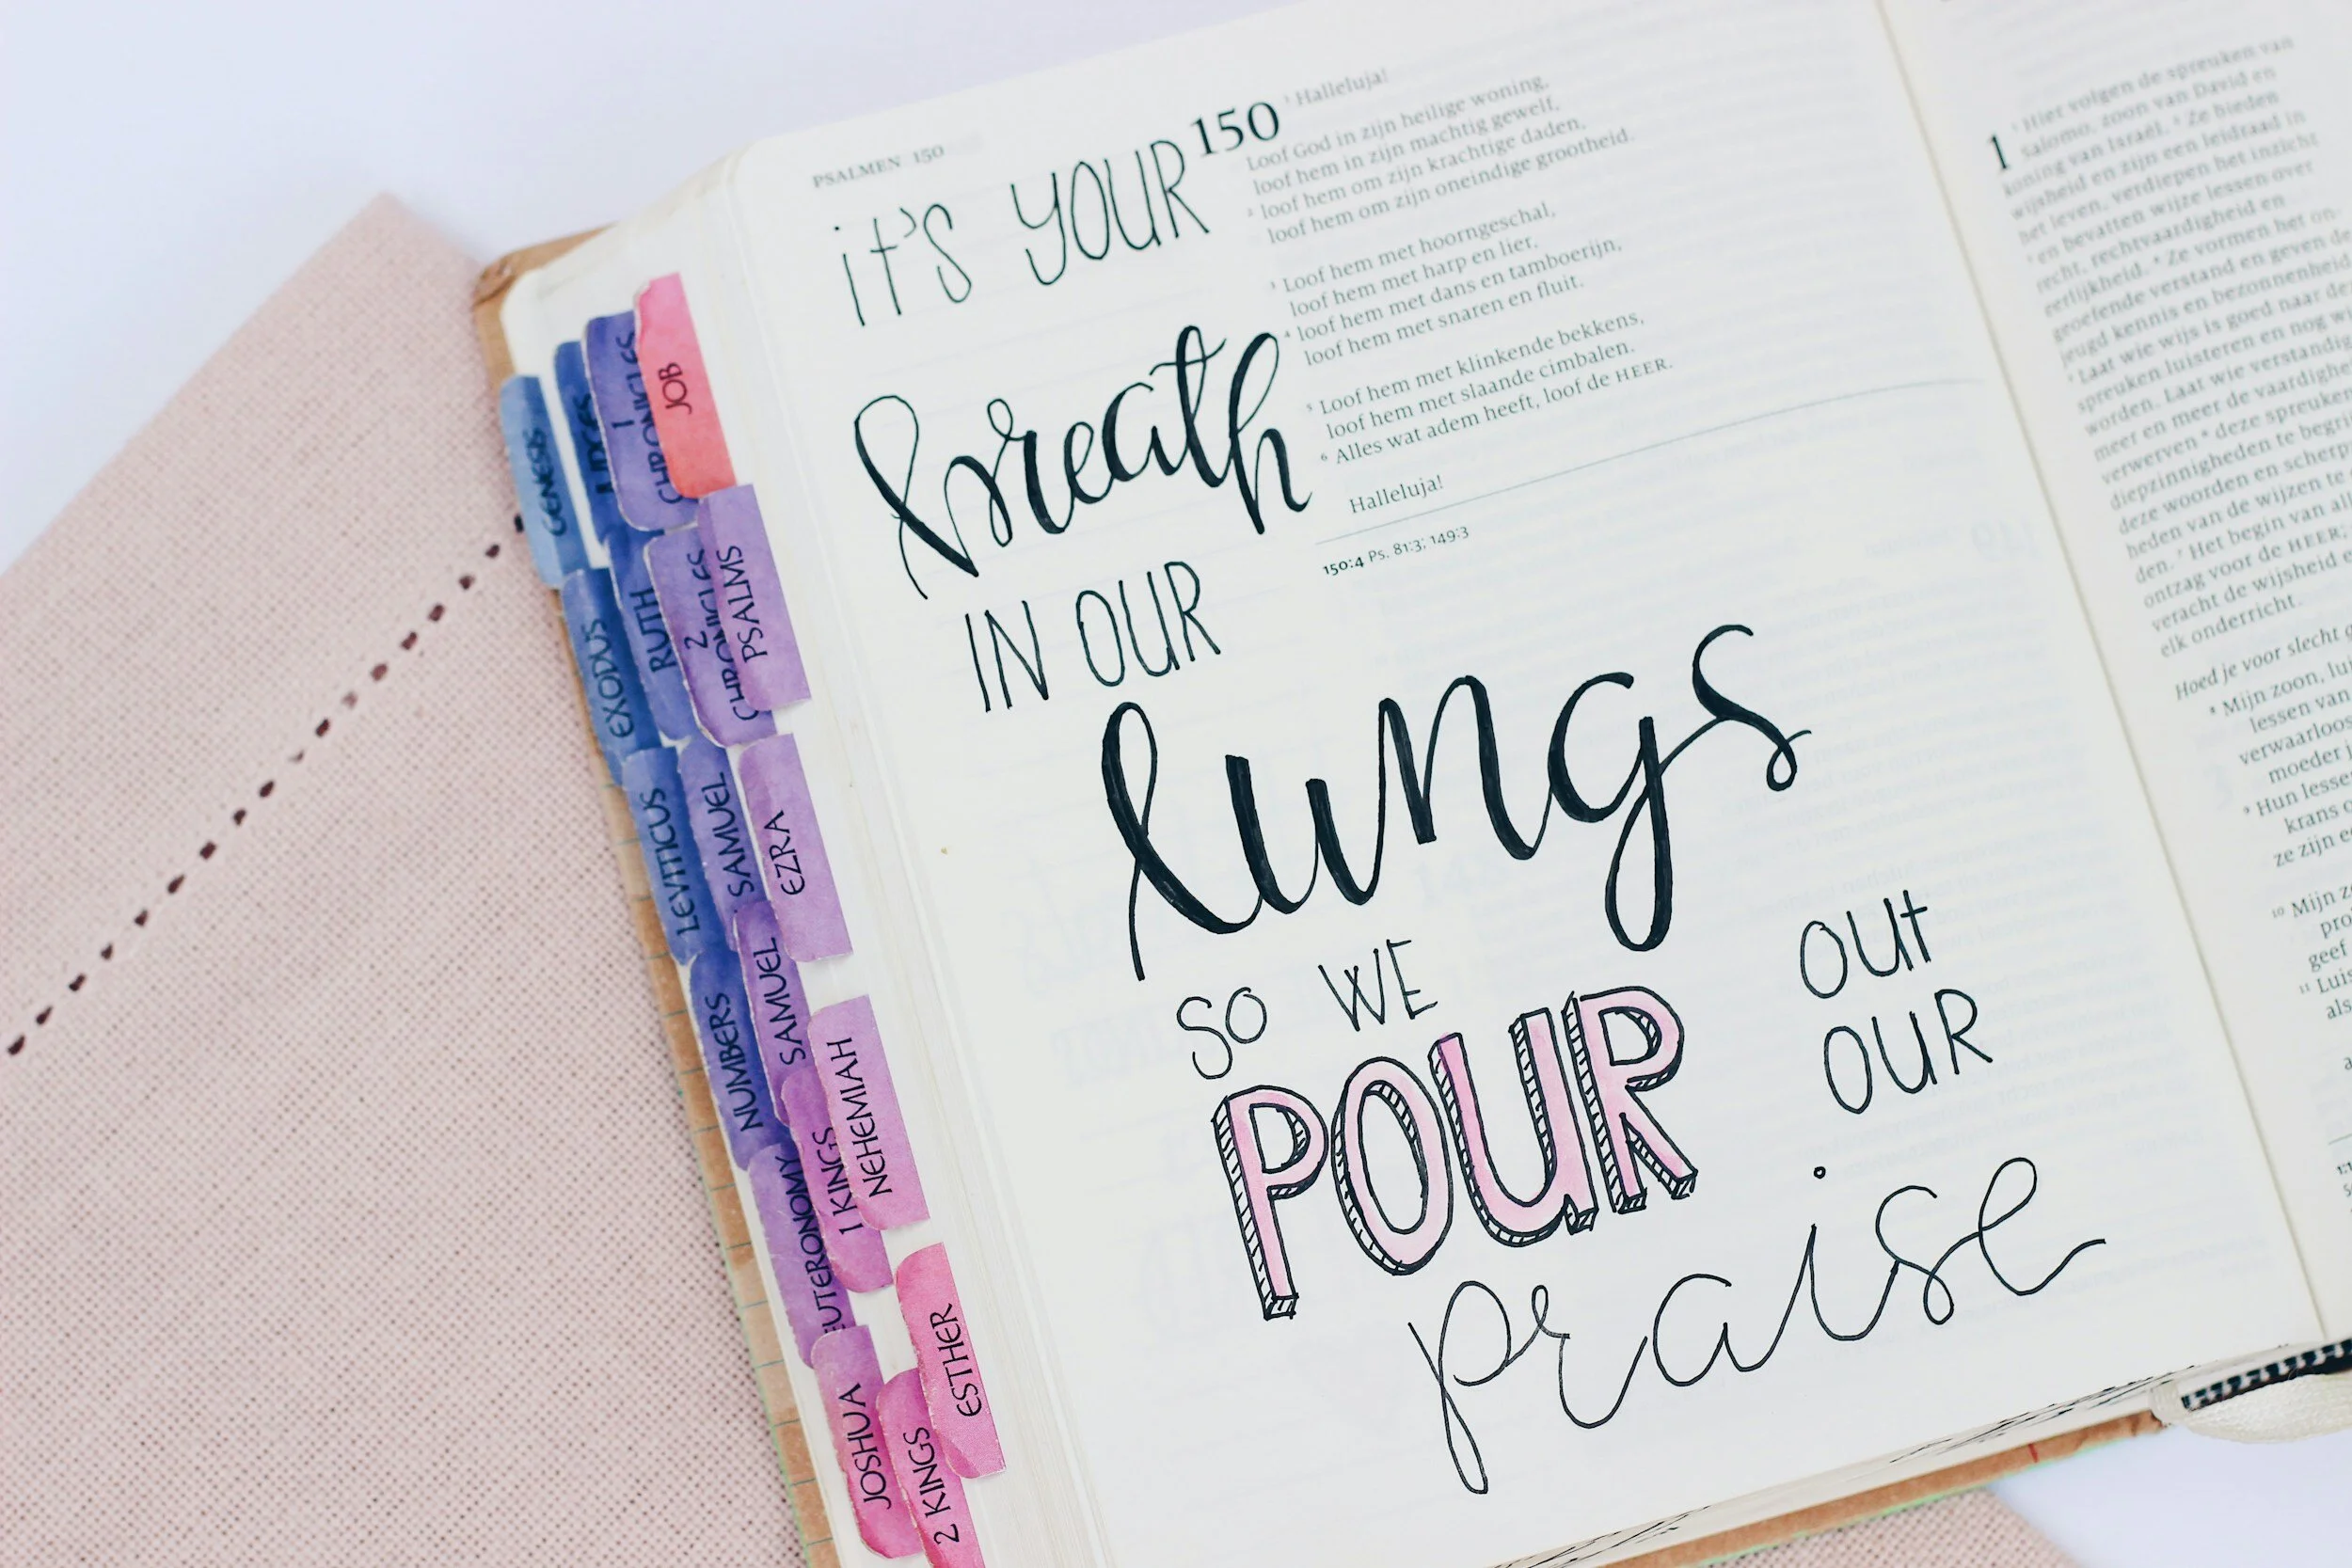 GENESIS
JUDGES
1 CHRONICLES
JOB
EXODUS
RUTH
2 CHRONICLES
PSALMS
LEVITICUS
SAMUEL
EZRA
NUMBERS
SAMUEL
NEHEMIAH
EUTERONOMY
1 KINGS
ESTHER
JOSHUA
2 KINGS
PSALMEN 150
it's YOUR
breath
IN OUR
lungs
SO WE
POUR
OUt
OUR
praise
150 1 Halleluja!
Loof God in zijn heilige woning,
loof hem in zijn machtig gewelf,
2 loof hem om zijn krachtige daden,
loof hem om zijn oneindige grootheid.
3 Loof hem met hoorngeschal,
loof hem met harp en lier,
4 loof hem met dans en tamboerijn,
loof hem met snaren en fluit.
5 Loof hem met klinkende bekkens,
loof hem met slaande cimbalen.
6 Alles wat adem heeft, loof de HEER.
Halleluja!
150:4 Ps. 81:3; 149:3
1 1 Hier volgen de spreuken van
Salomo, zoon van David en
koning van Israël. 2 Ze bieden
wijsheid en zijn een leidraad in
het leven, verdiepen het inzicht
3 en bevatten wijze lessen over
recht, rechtvaardigheid en
eerlijkheid. 4 Ze vormen het on-
geoefende verstand en geven de
jeugd kennis en bezonnenheid
5 Laat wie wijs is goed naar de
spreuken luisteren en nog
worden. Laat wie verstandig
meer en meer de vaardighe
verwerven 6 deze spreuken
diepzinnigheden te begri
deze woorden en scherp
heden van de wijzen te
den. 7 Het begin van al
ontzag voor de HEER.
veracht de wijsheid e
elk onderricht.
Hoed je voor slecht
8 Mijn zoon, lui
lessen van
verwaarloo
moeder
9 Hun lesse
krans
ze zijn
10 Mijn
geef
11 Luis
als